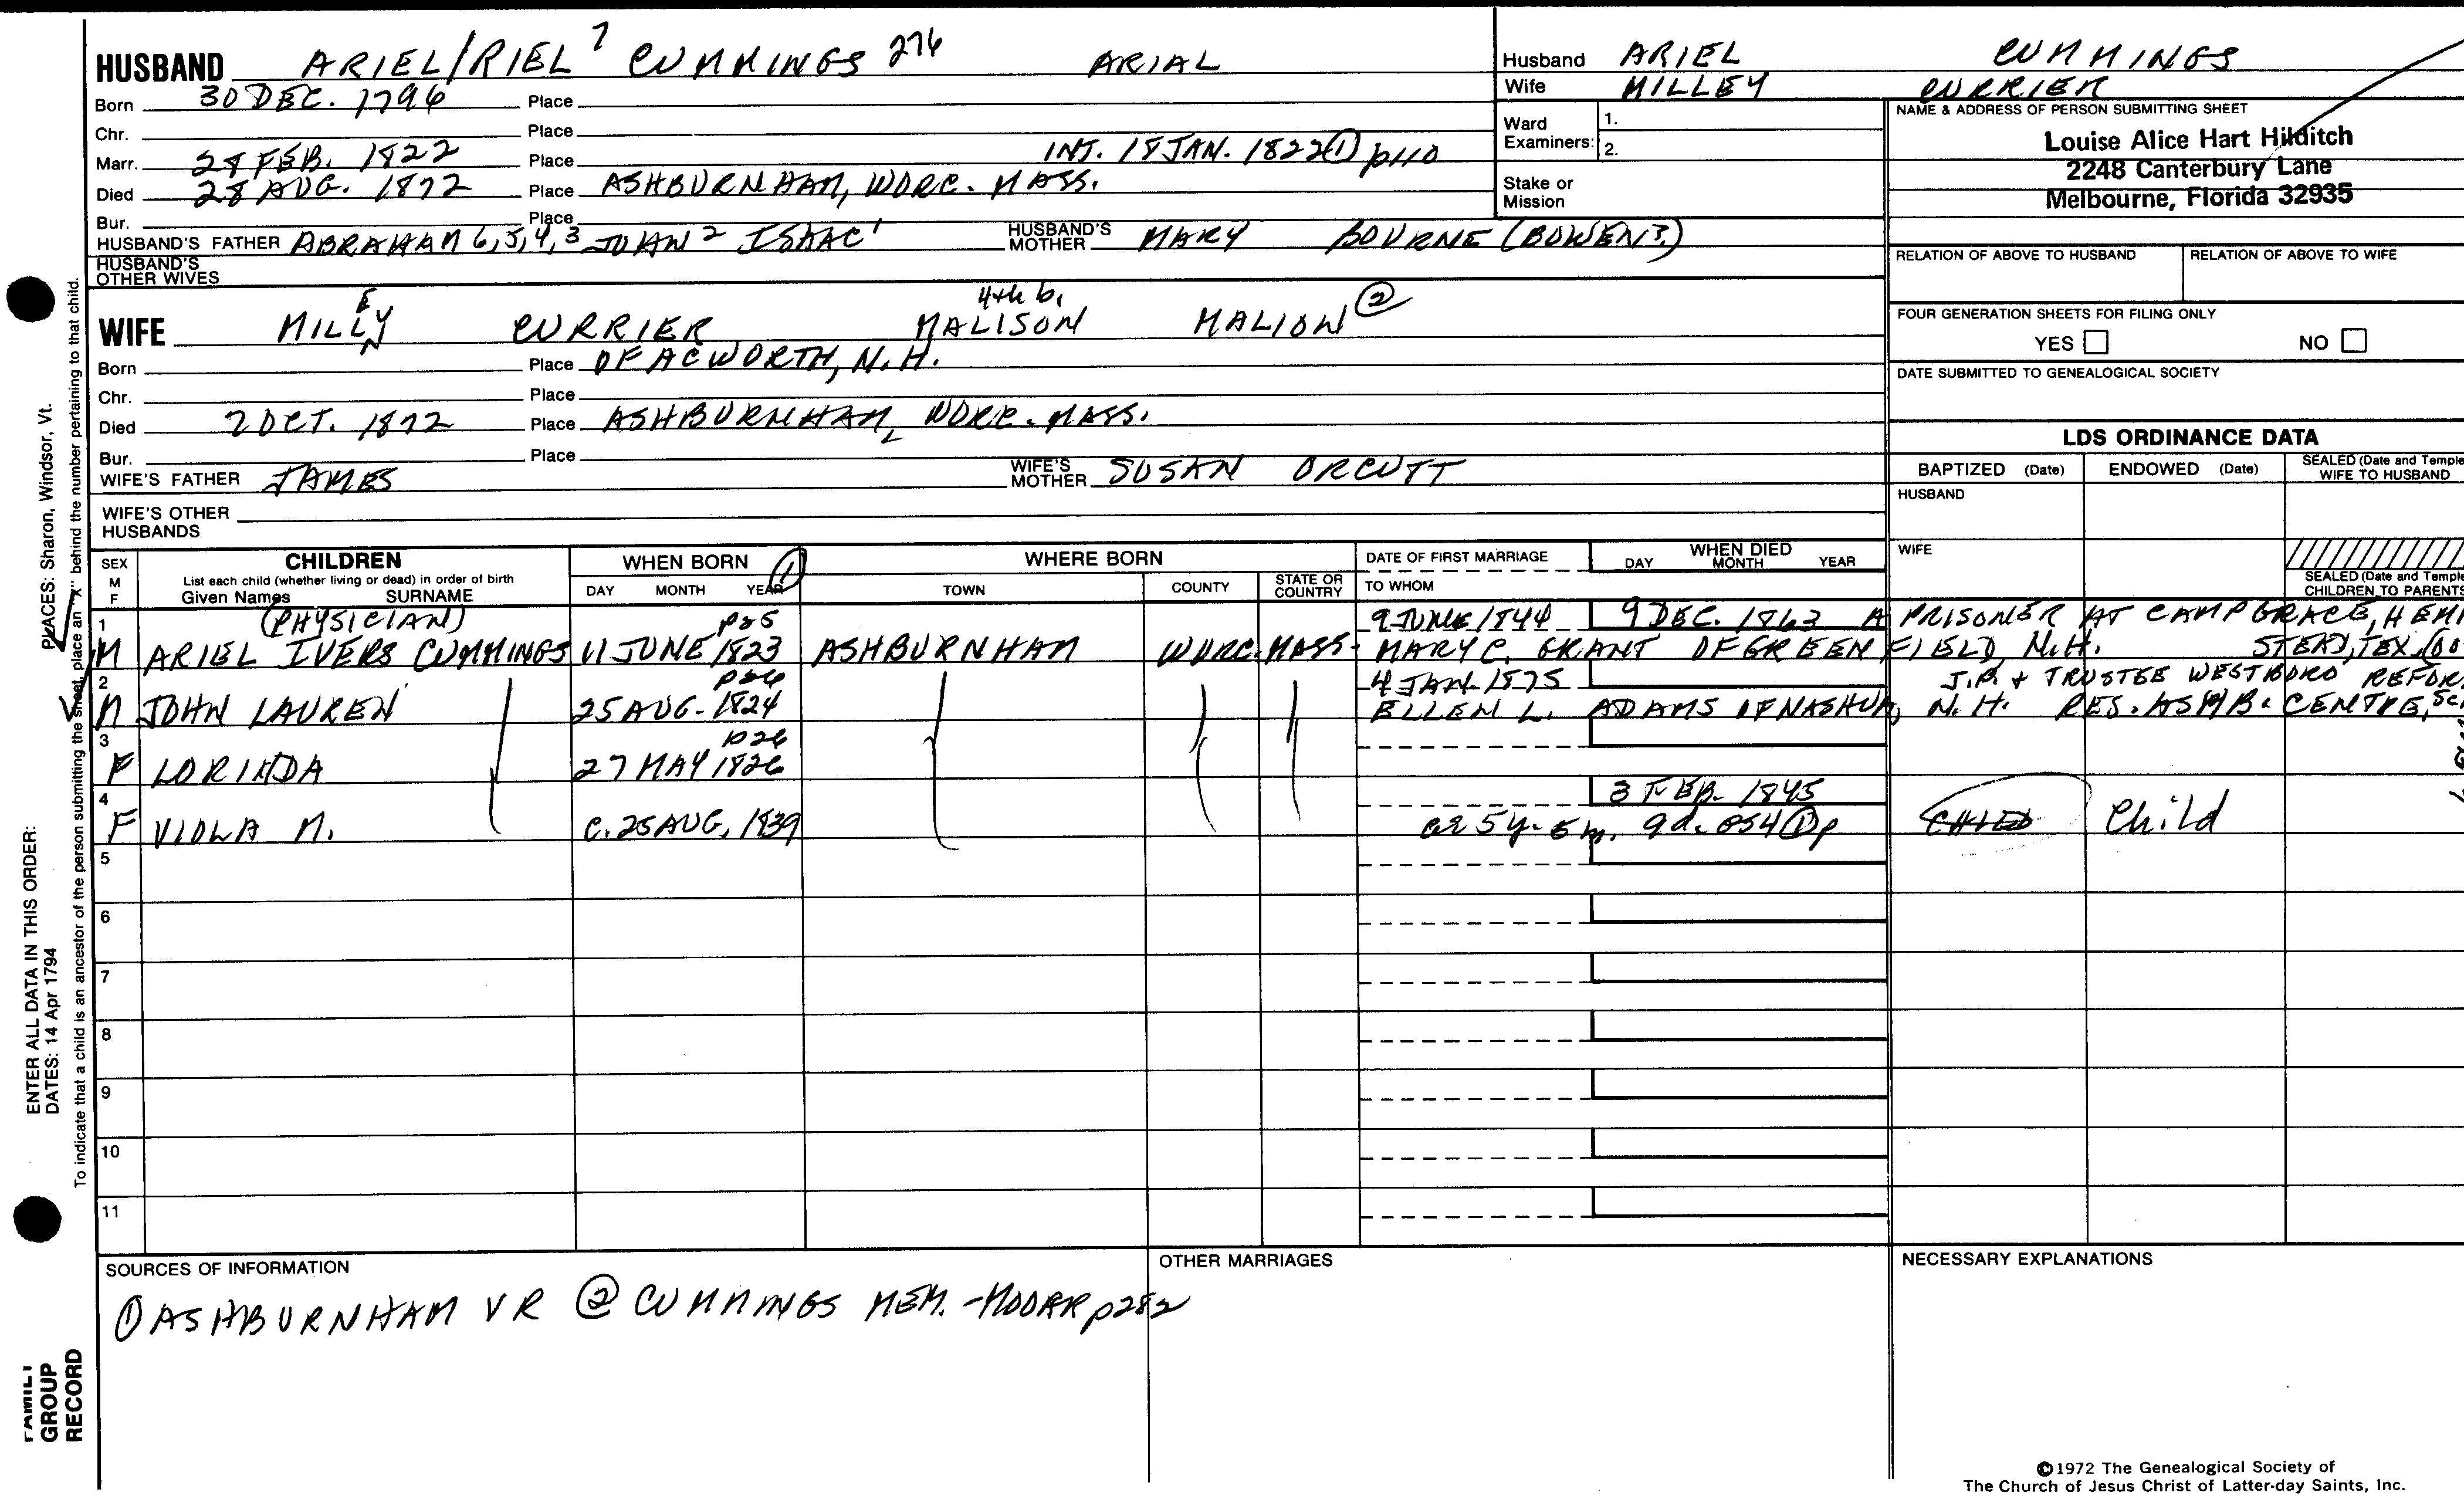 HUSBAND ARIEL/RIEL 7 CUMMINGS 276 ARIAL
Born 30 DEC. 1796 Place
Chr. Place
Marr. 28 FEB. 1822 Place INT. 18 JAN. 1822 (1) p110
Died 28 AUG. 1872 Place ASHBURNHAM, WORC. MASS.
Bur. Place
HUSBAND'S FATHER ABRAHAM 6,5,4,3 JOHN 2 ISAAC 1 HUSBAND'S MOTHER MARY BOURNE (BOWEN?)
HUSBAND'S OTHER WIVES
Husband ARIEL CUMMINGS
Wife MILLEY CURRIER
Ward Examiners: 1.
2.
Stake or Mission
NAME & ADDRESS OF PERSON SUBMITTING SHEET
Louise Alice Hart Hilditch
2248 Canterbury Lane
Melbourne, Florida 32935
RELATION OF ABOVE TO HUSBAND RELATION OF ABOVE TO WIFE
FOUR GENERATION SHEETS FOR FILING ONLY
YES NO
DATE SUBMITTED TO GENEALOGICAL SOCIETY
4th b.
WIFE MILLY CURRIER MALISON MALION (2)
Born Place OF ACWORTH, N.H.
Chr. Place
Died 7 OCT. 1872 Place ASHBURNHAM, WORC. MASS.
Bur. Place
WIFE'S FATHER JAMES WIFE'S MOTHER SUSAN ORCUTT
WIFE'S OTHER HUSBANDS
LDS ORDINANCE DATA
BAPTIZED (Date) ENDOWED (Date) SEALED (Date and Temple) WIFE TO HUSBAND
HUSBAND
WIFE
SEALED (Date and Temple) CHILDREN TO PARENTS
SEX M F CHILDREN WHEN BORN (1) WHERE BORN DATE OF FIRST MARRIAGE WHEN DIED
List each child (whether living or dead) in order of birth
Given Names SURNAME DAY MONTH YEAR TOWN COUNTY STATE OR COUNTRY TO WHOM DAY MONTH YEAR
1 (PHYSICIAN) p25 9 JUNE 1844 9 DEC. 1863 A PRISONER AT CAMP GRACE, HEMP
M ARIEL IVERS CUMMINGS 11 JUNE 1823 ASHBURNHAM WORC. MASS. MARY C. GRANT OF GREENFIELD, N.H. STEAD, TEX.
2 p26 4 JAN 1875 J.P. + TRUSTEE WESTBORO REFORM
M JOHN LAUREN 25 AUG. 1824 ELLEN L. ADAMS OF NASHUA, N.H. RES. ASHB. CENTRE,
3 p26
F LORINDA 27 MAY 1826
4 3 FEB. 1845
F VIOLA M. C. 25 AUG, 1839 ae 5y. 5m. 9d. CHILD Child
5
6
7
8
9
10
11
SOURCES OF INFORMATION OTHER MARRIAGES NECESSARY EXPLANATIONS
(1) ASHBURNHAM VR (2) CUMMINGS MEM. - MOOAR p282
©1972 The Genealogical Society of
The Church of Jesus Christ of Latter-day Saints, Inc.
PLACES: Sharon, Windsor, Vt.
To indicate that a child is an ancestor of the person submitting the sheet, place an "X" behind the number pertaining to that child.
ENTER ALL DATA IN THIS ORDER:
DATES: 14 Apr 1794
FAMILY
GROUP
RECORD